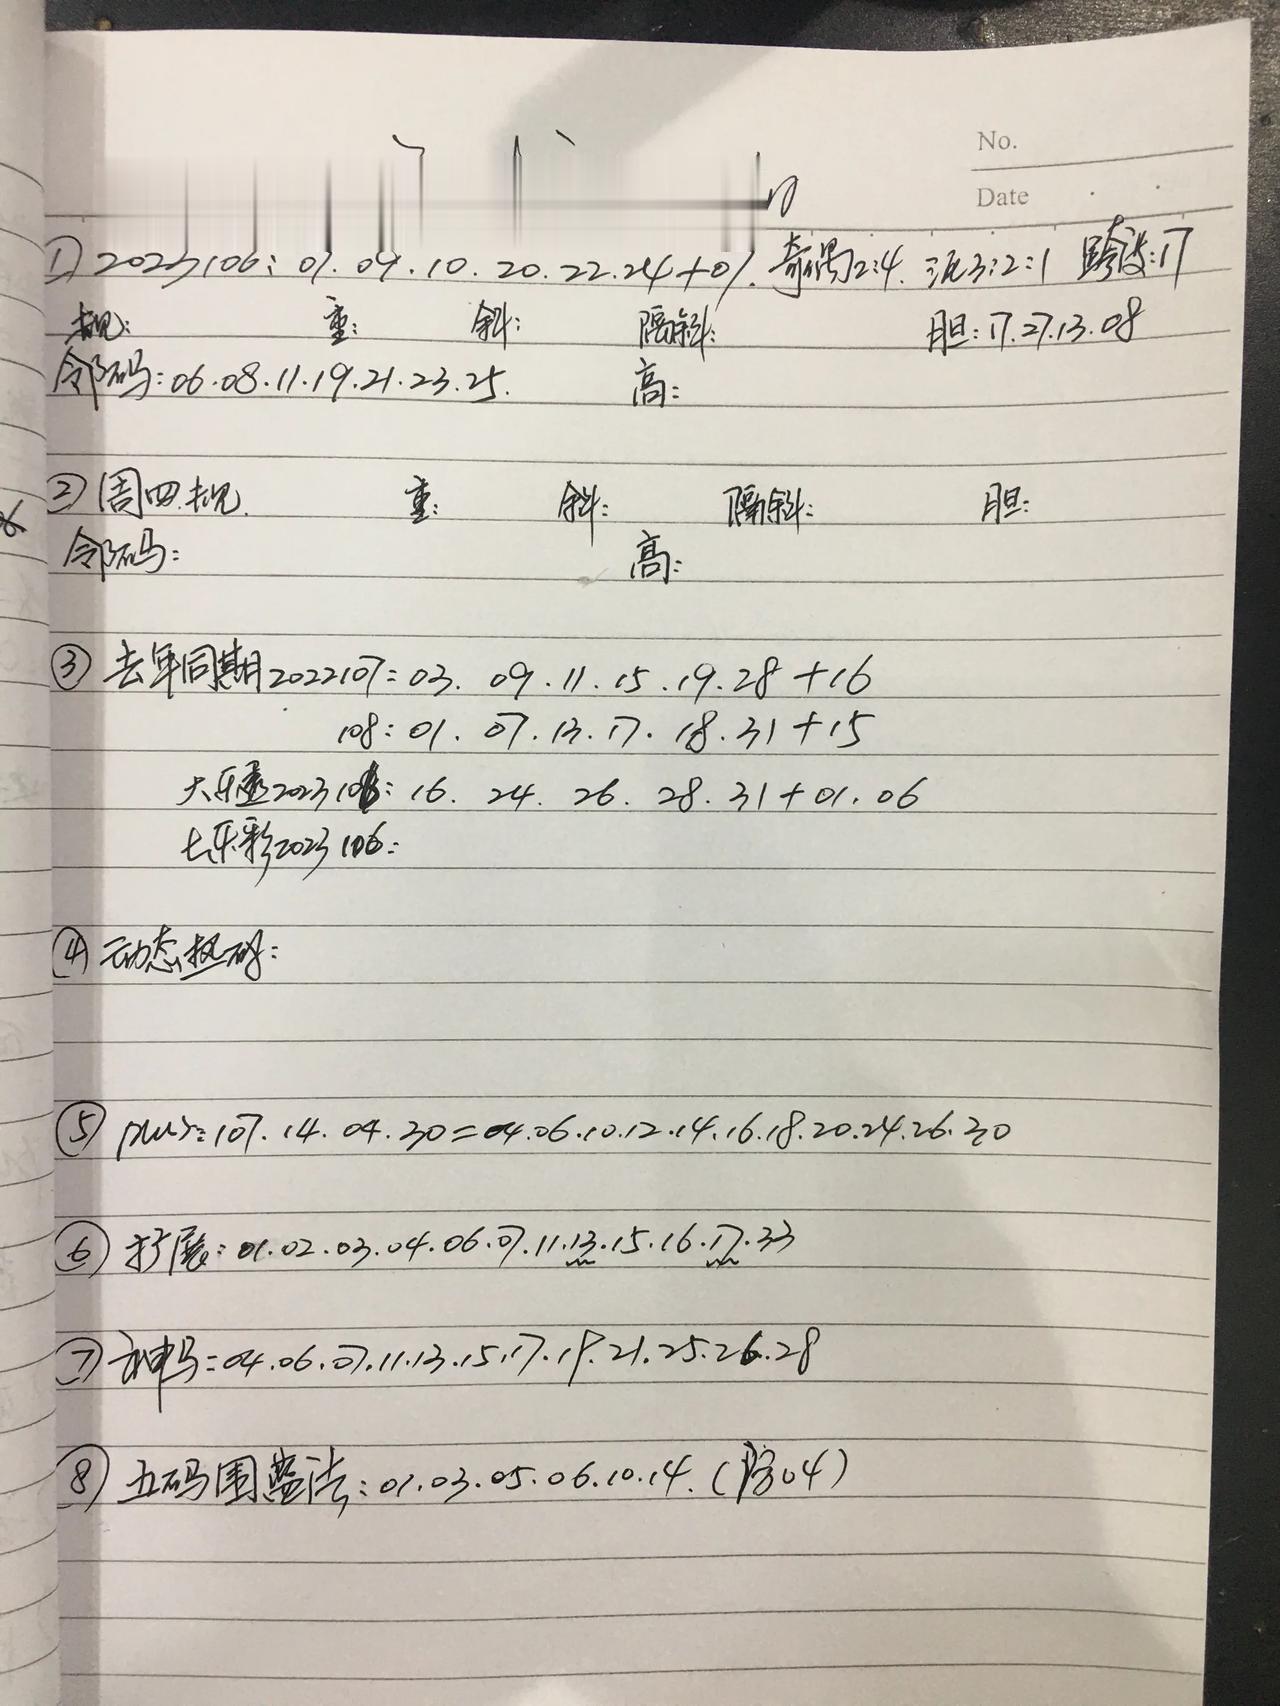 No.
Date
① 2023106: 07.09.10.20.22.24+07. 奇偶2:4. 沉3:2:1 跨度:17
规: 重: 斜: 隔斜: 胆: 17.27.13.08
邻码: 06.08.11.19.21.23.25. 高:
② 周四规. 重: 斜: 隔斜: 胆:
邻码: 高:
③ 去年同期2022107: 03. 09.11.15.19.28+16
108: 01. 07.13.17.18.31+15
大乐透2023106: 16. 24. 26. 28.31+01.06
七乐彩2023106:
④ 动态热码:
⑤ plus: 107.14.04.30=04.06.10.12.14.16.18.20.24.26.30
⑥ 扩展: 01.02.03.04.06.07.11.13.15.16.17.33
⑦ 神马: 04.06.07.11.13.15.17.19.21.25.26.28
⑧ 五码围蓝法: 01.03.05.06.10.14. (防04)